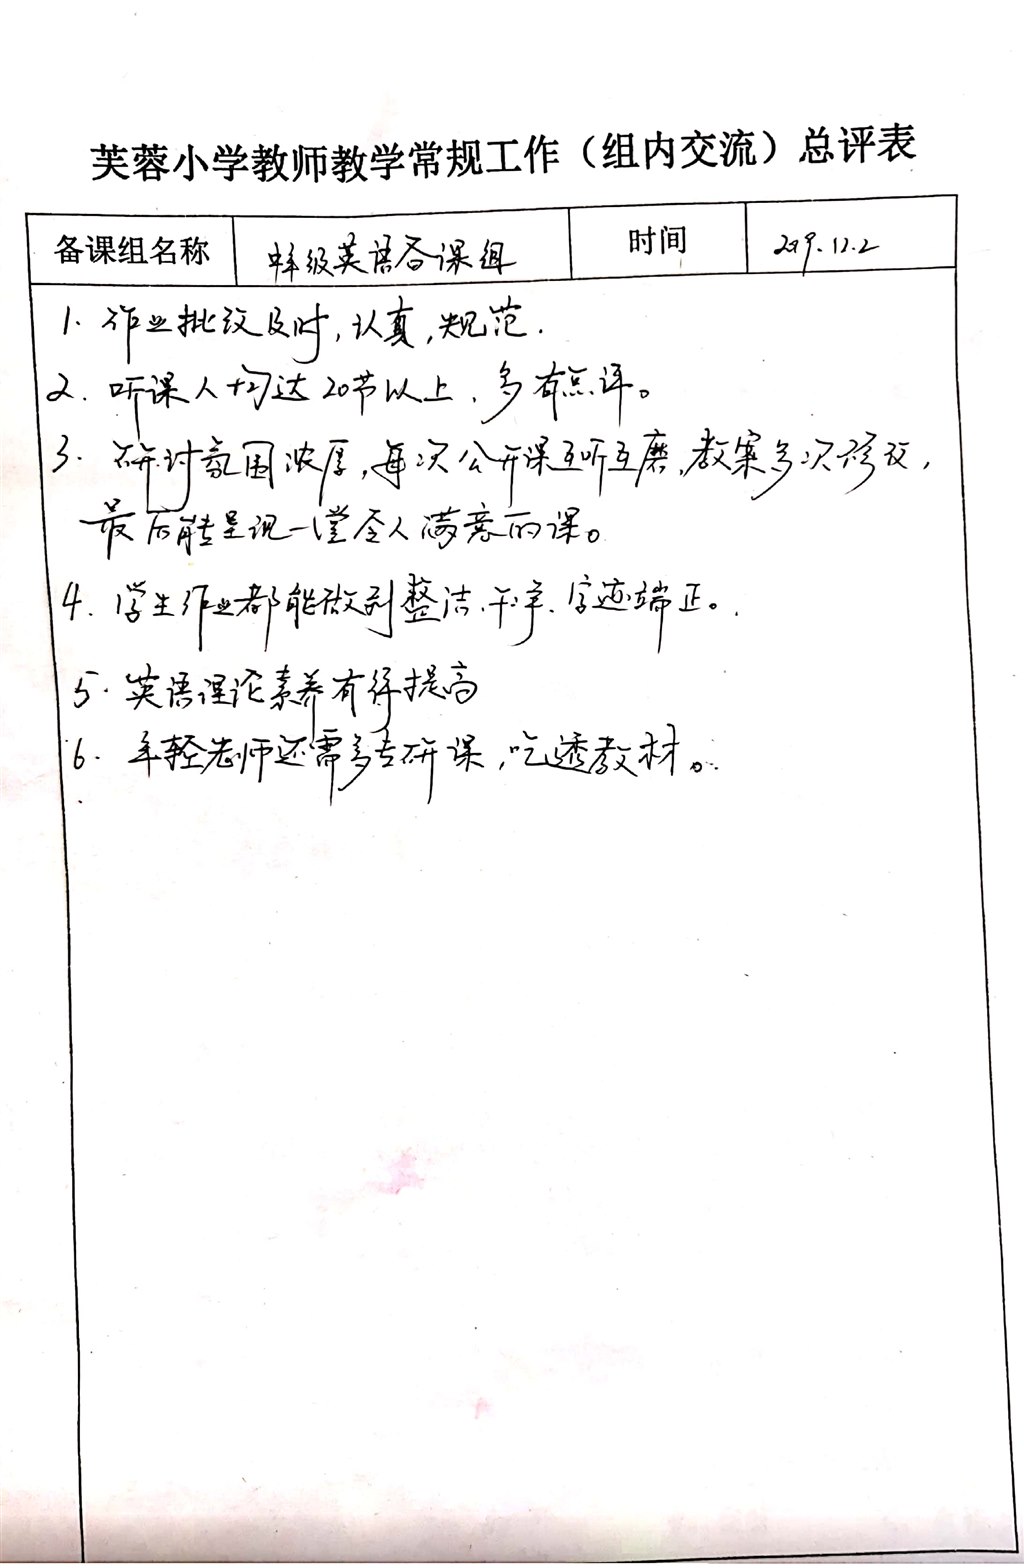 芙蓉小学教师教学常规工作（组内交流）总评表
备课组名称 中年级英语备课组 时间 2019.12.2
1. 作业批改及时,认真,规范.
2. 听课人均达20节以上、多有点评。
3. 研讨氛围浓厚,每次公开课互听互磨,教案多次修改,
最后能呈现一堂令人满意的课。
4. 学生作业都能做到整洁、干净、字迹端正。
5. 英语理论素养有待提高
6. 年轻老师还需多专研课,吃透教材。